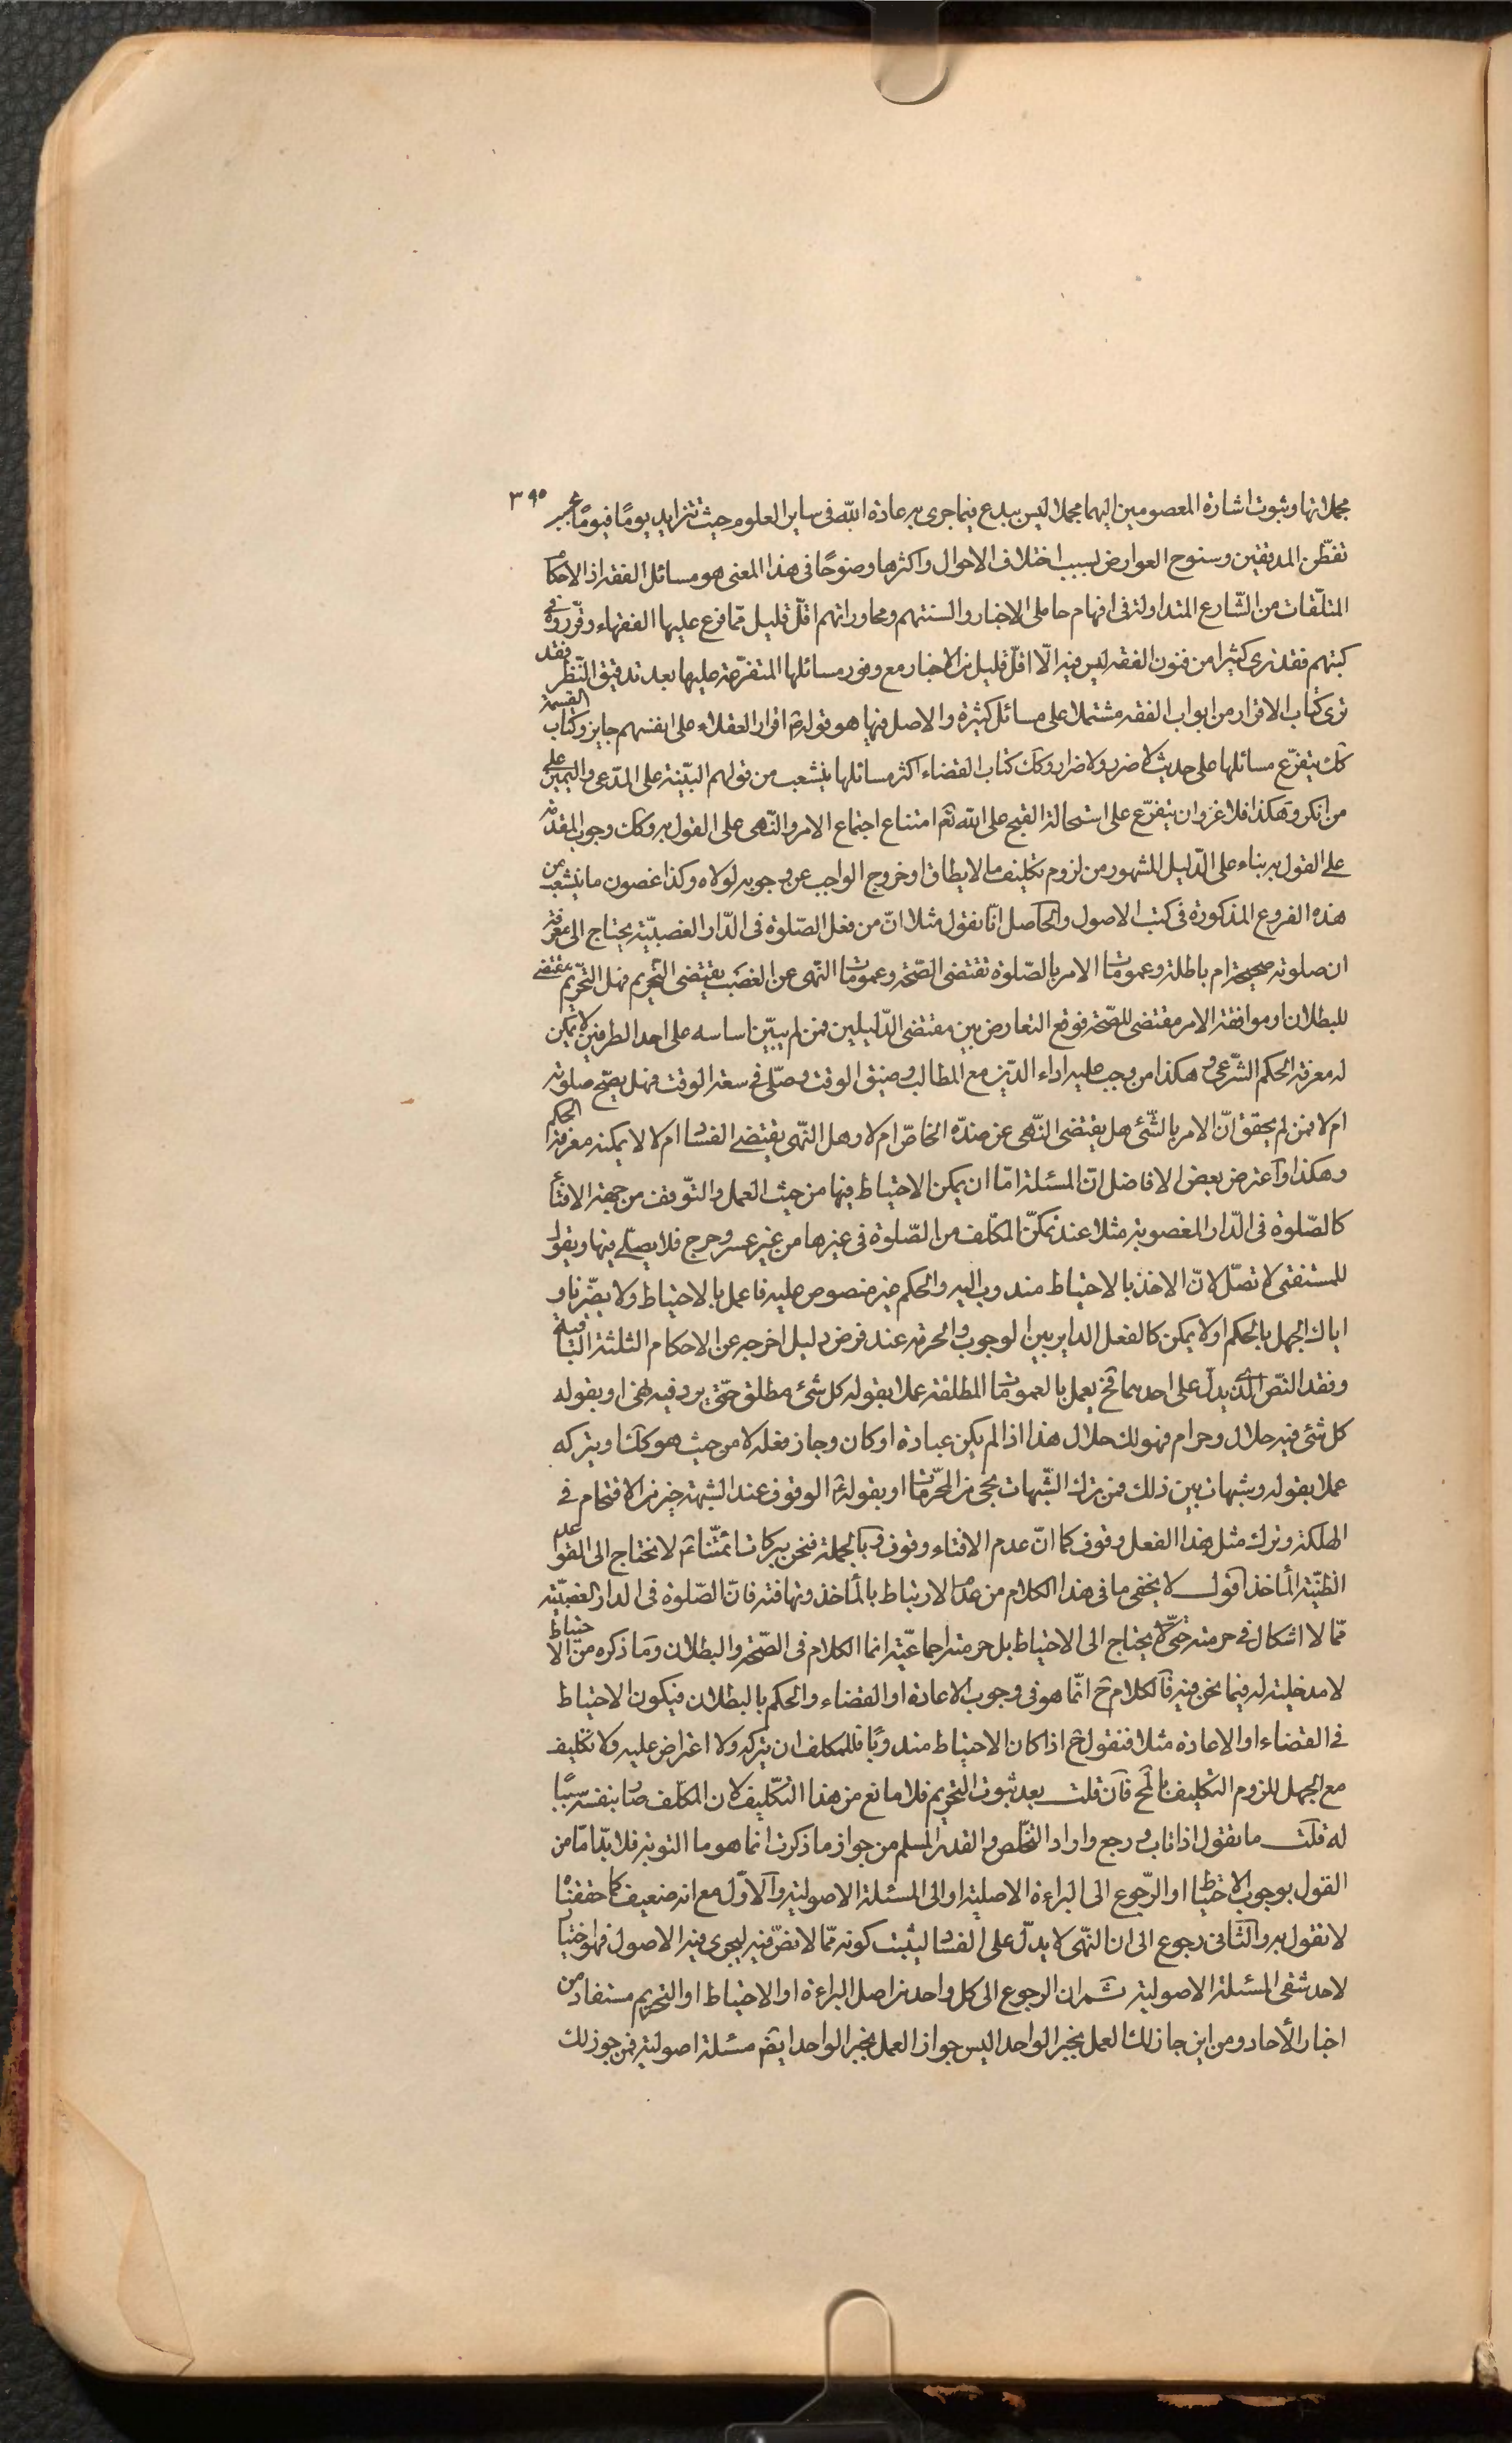 ٣٩٥
مجملاتها وثبوت اشارة المعصومين اليهما مجملا ليس ببدع فيما جرى به عادة الله فى ساير العلوم حيث تتزايد يومًا فيومًا بحسب
تفطّن المدققين وسنوح العوارض بسبب اختلاف الاحوال واكثرها وضوحًا فى هذا المعنى هو مسائل الفقه اذ الاحكام
المتلقّات من الشّارع المتداولة فى افهام حاملى الاخبار والسنتهم ومحاوراتهم اقلّ قليل ممّا فرع عليها الفقهاء وقرّروه فى
كتبهم فقد ترى كثيرا من فنون الفقه ليس فيه الّا اقلّ قليل من الاخبار مع وفور مسائلها المتفرّعة عليها بعد تدقيق النّظر فقد
ترى كتاب الاقرار من ابواب الفقه مشتملا على مسائل كثيرة والاصل فيها هو قوله ع اقرار العقلاء على انفسهم جايز وكتاب القسمة
كك يتفرّع مسائلها على حديث لا ضرر ولا ضرار وكك كتاب القضاء اكثر مسائلها ينشعب من قولهم البيّنة على المدّعى واليمين على
من انكر وهكذا فلا غرو ان يتفرّع على استحالة القبح على الله تع امتناع اجتماع الامر والنّهى على القول به وكك وجوب المقدمة
على القول به بناء على الدّليل المشهور من لزوم تكليف ما لا يطاق او خروج الواجب عن وجوبه لولاه وكذا غصون ما ينشعب من
هذه الفروع المذكورة فى كتب الاصول والحاصل انّا نقول مثلا انّ من فعل الصّلوة فى الدّار الغصبيّة يحتاج الى معرفة
ان صلوته صحيحة ام باطلة وعمومات الامر بالصّلوة تقتضى الصّحة وعمومات النّهى عن الغصب يقتضى التّحريم فهل التّحريم مقتضى
للبطلان او موافقة الامر مقتضى للصّحة فوقع التعارض بين مقتضى الدّليلين فمن لم يبيّن اساسه على احد الطرفين لا يمكن
له معرفة الحكم الشّرعى وهكذا من وجب عليه اداء الدّين مع المطالب وضيق الوقت وصلّى فى سعة الوقت فهل يصحّ صلوته
ام لا فمن لم يحقق انّ الامر بالشّئ هل يقتضى النّهى عن ضدّه الخاصّ ام لا وهل النّهى يقتضى الفساد ام لا لا يمكنه معرفة الحكم
وهكذا واعترض بعض الافاضل انّ المسئلة امّا ان يمكن الاحتياط فيها من حيث العمل والتوّقف من جهة الافتاء
كالصّلوة فى الدّار المغصوبة مثلا عند تمكّن المكلّف من الصّلوة فى غيرها من غير عسر وحرج فلا يصلّى فيها ويقول
للمستفتى لا تصلّ لانّ الاخذ بالاحتياط مندوب اليه والحكم غير منصوص عليه فاعمل بالاحتياط ولا يضرّنا و
اياك الجهل بالحكم او لا يمكن كالفعل الداير بين الوجوب والحرمة عند فرض دليل اخرجه عن الاحكام الثلثة الباقية
وفقد النّص الّذى يدلّ على احدهما فح يعمل بالعمومات المطلقة عملا بقوله كل شئ مطلق حتّى يرد فيه نهى او بقوله
كل شئ فيه حلال وحرام فهو لك حلال هذا اذا لم يكن عبادة او كان وجاز فعله لا من حيث هو كك او يتركه
عملا بقوله وشبهات بين ذلك فمن ترك الشّبهات نجى من المحرّمات او بقوله ع الوقوف عند الشبهة خير من الاقتحام فى
الهلكة وترك مثل هذا الفعل وقوف كما انّ عدم الافتاء وقوف وبالجملة فنحن ببركات ائمّتنا ع لا نحتاج الى القواعد
الظنّية المأخذ اقول لا يخفى ما فى هذا الكلام من عدم الارتباط بالمأخذ وتهافته فانّ الصّلوة فى الدار الغصبيّة
ممّا لا اشكال فى حرمته حتّى لا يحتاج الى الاحتياط بل حرمته اجماعيّة انما الكلام فى الصّحة والبطلان وما ذكره من الاحتياط
لا مدخلية له فيما نحن فيه فالكلام ح انّما هو فى وجوب الاعادة او القضاء والحكم بالبطلان فيكون الاحتياط
فى القضاء او الاعادة مثلا فنقول ح اذا كان الاحتياط مندوبًا فللمكلف ان يتركه ولا اعتراض عليه ولا تكليف
مع الجهل للزوم التكليف بالمح فان قلت بعد ثبوت التحريم فلا مانع من هذا التكليف لان المكلّف صار بنفسه سببًا
له قلت ما نقول اذا تاب ورجع واراد التخلّص والقدر المسلم من جواز ما ذكرت انما هو ما التوبة فلا بدّ امّا من
القول بوجوب الاحتياط او الرّجوع الى البراءة الاصلية او الى المسئلة الاصولية والاوّل مع انه ضعيف كما حققناه
لا نقول به والثانى رجوع الى ان النّهى لا يدلّ على الفساد ليثبت كونه ممّا لا نصّ فيه ليجرى فيه الاصول فهو اختيار
لاحد شقى المسئلة الاصولية ثم ان الرجوع الى كل واحد من اصل البراءة او الاحتياط او التحريم مستفاد من
اخبار الأحاد ومن اين جاز لك العمل بخبر الواحد اليس جواز العمل بخبر الواحد ايضا مسئلة اصولية فمن جوز لك